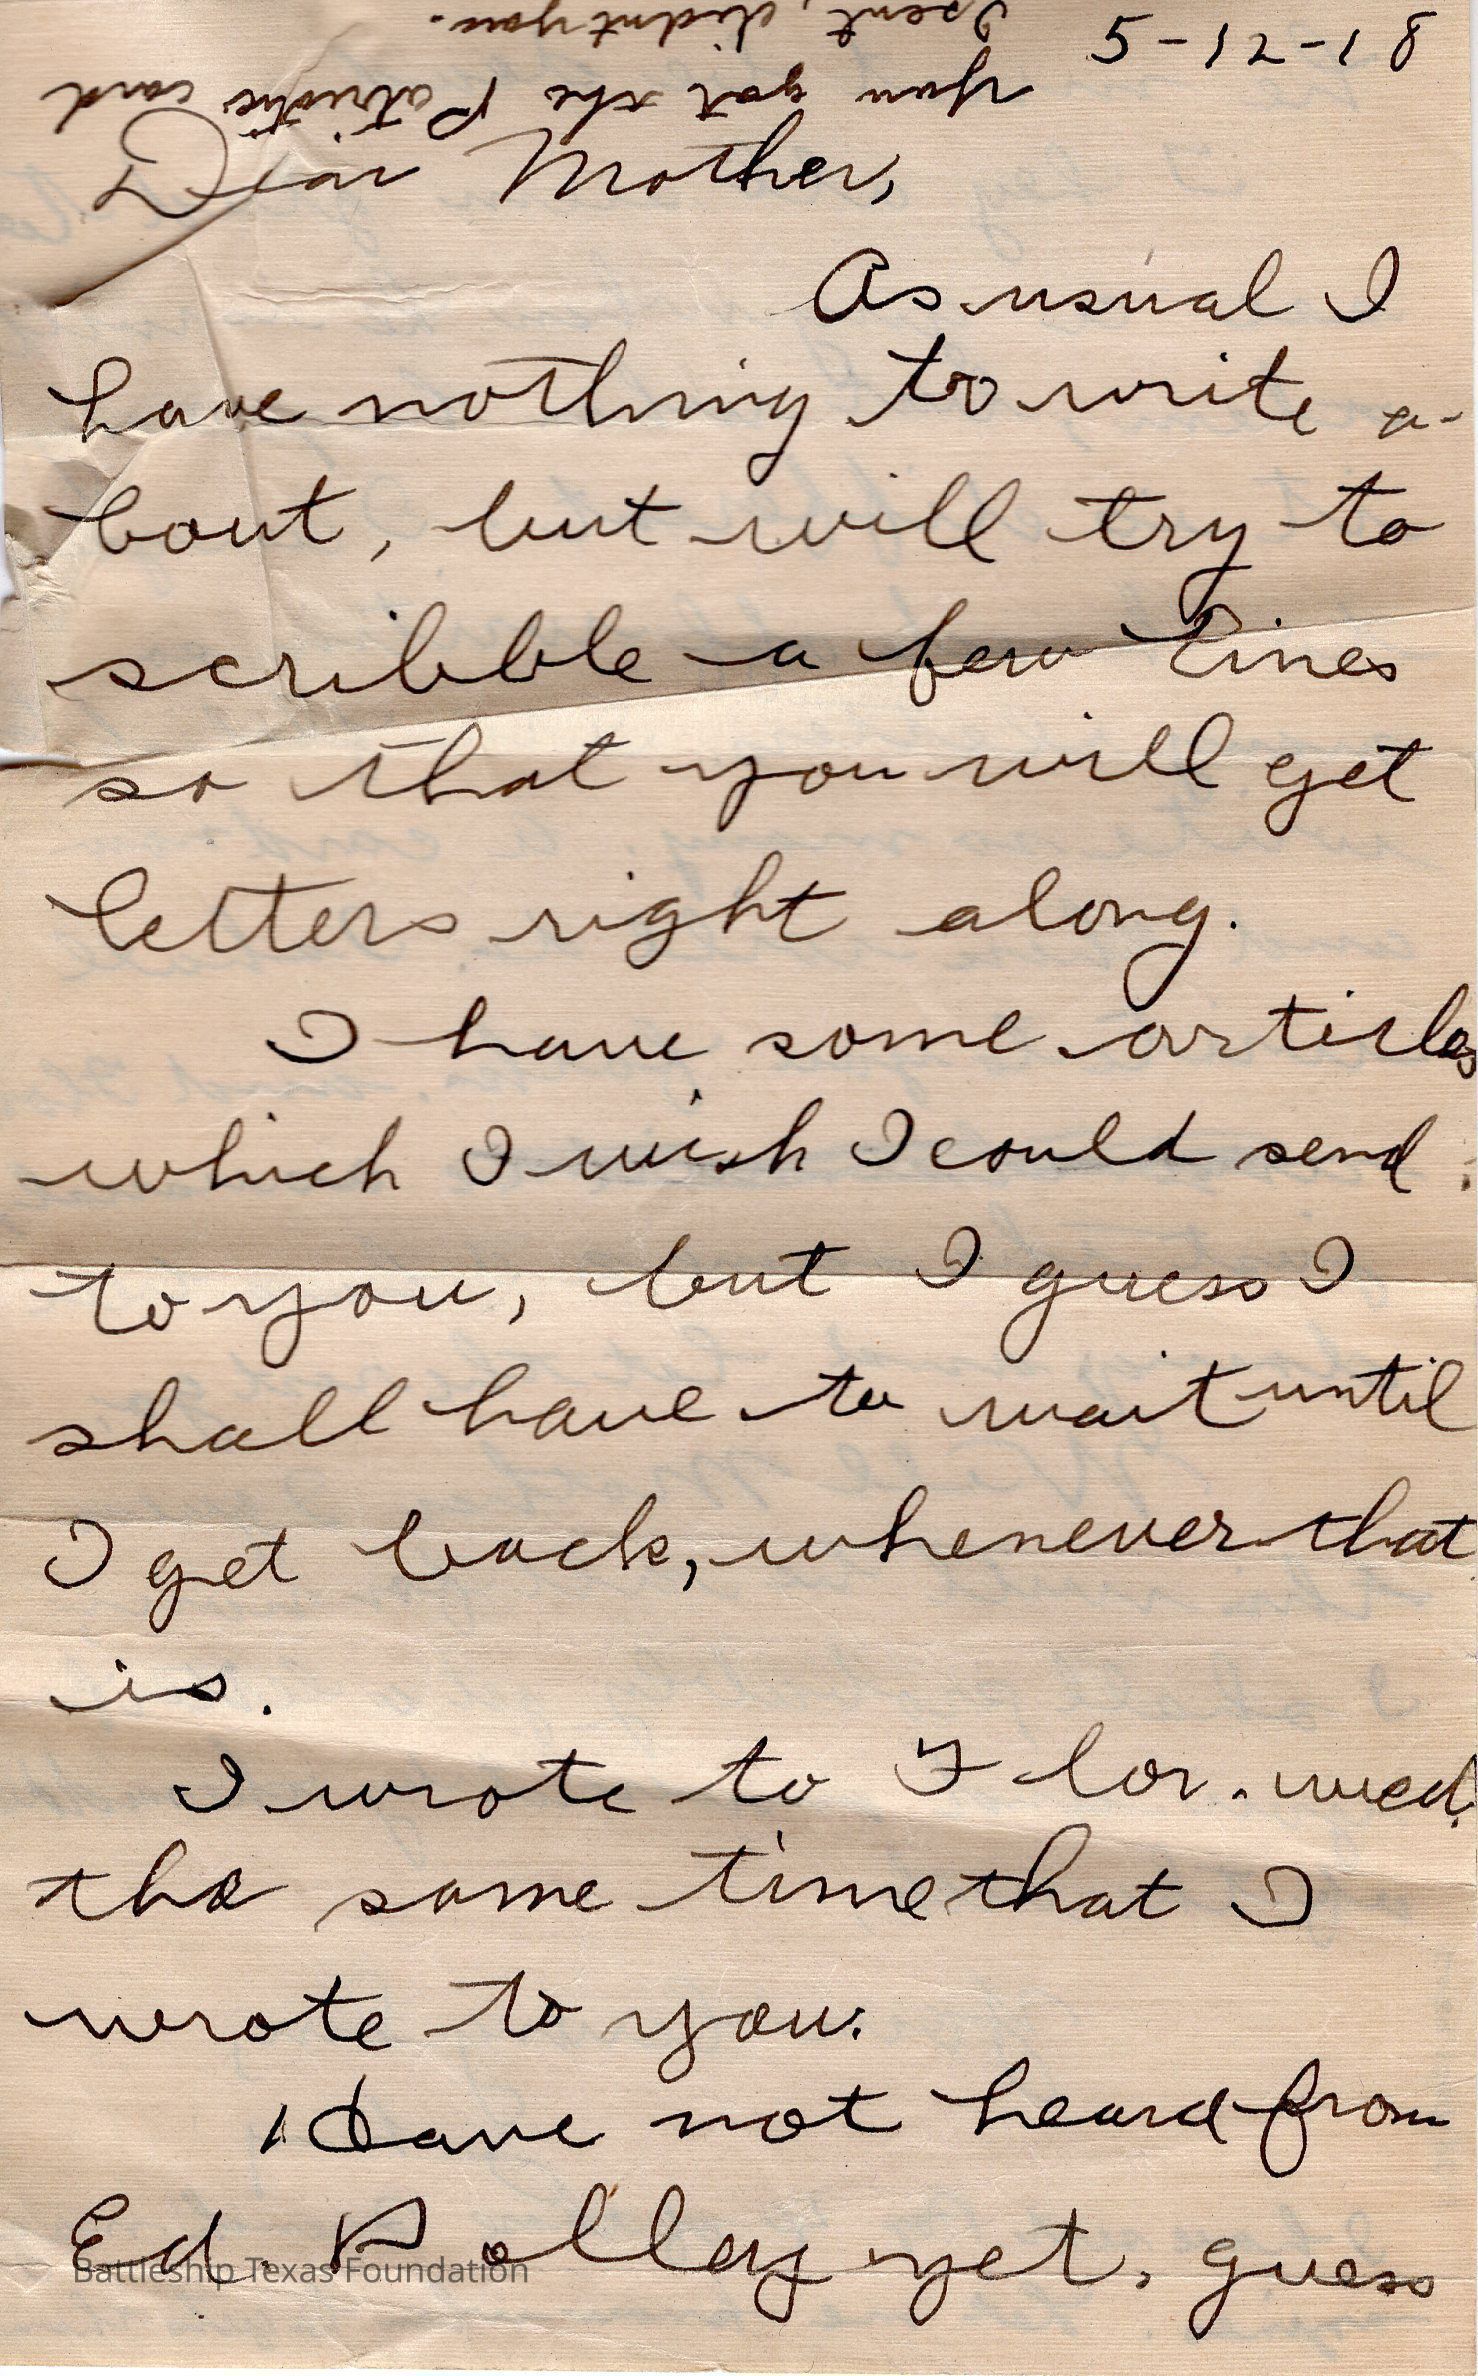 5-12-18
You got the Patriotic card
I sent, didnt you.
Dear Mother,
As usual I
have nothing to write a-
bout, but will try to
scribble a few lines
so that you will get
letters right along.
I have some articles
which I wish I could send
to you, but I guess I
shall have to wait until
I get back, whenever that
is.
I wrote to Flor. wed.
the same time that I
wrote to you.
Have not heard from
Ed. Polley yet. guess
Battleship Texas Foundation